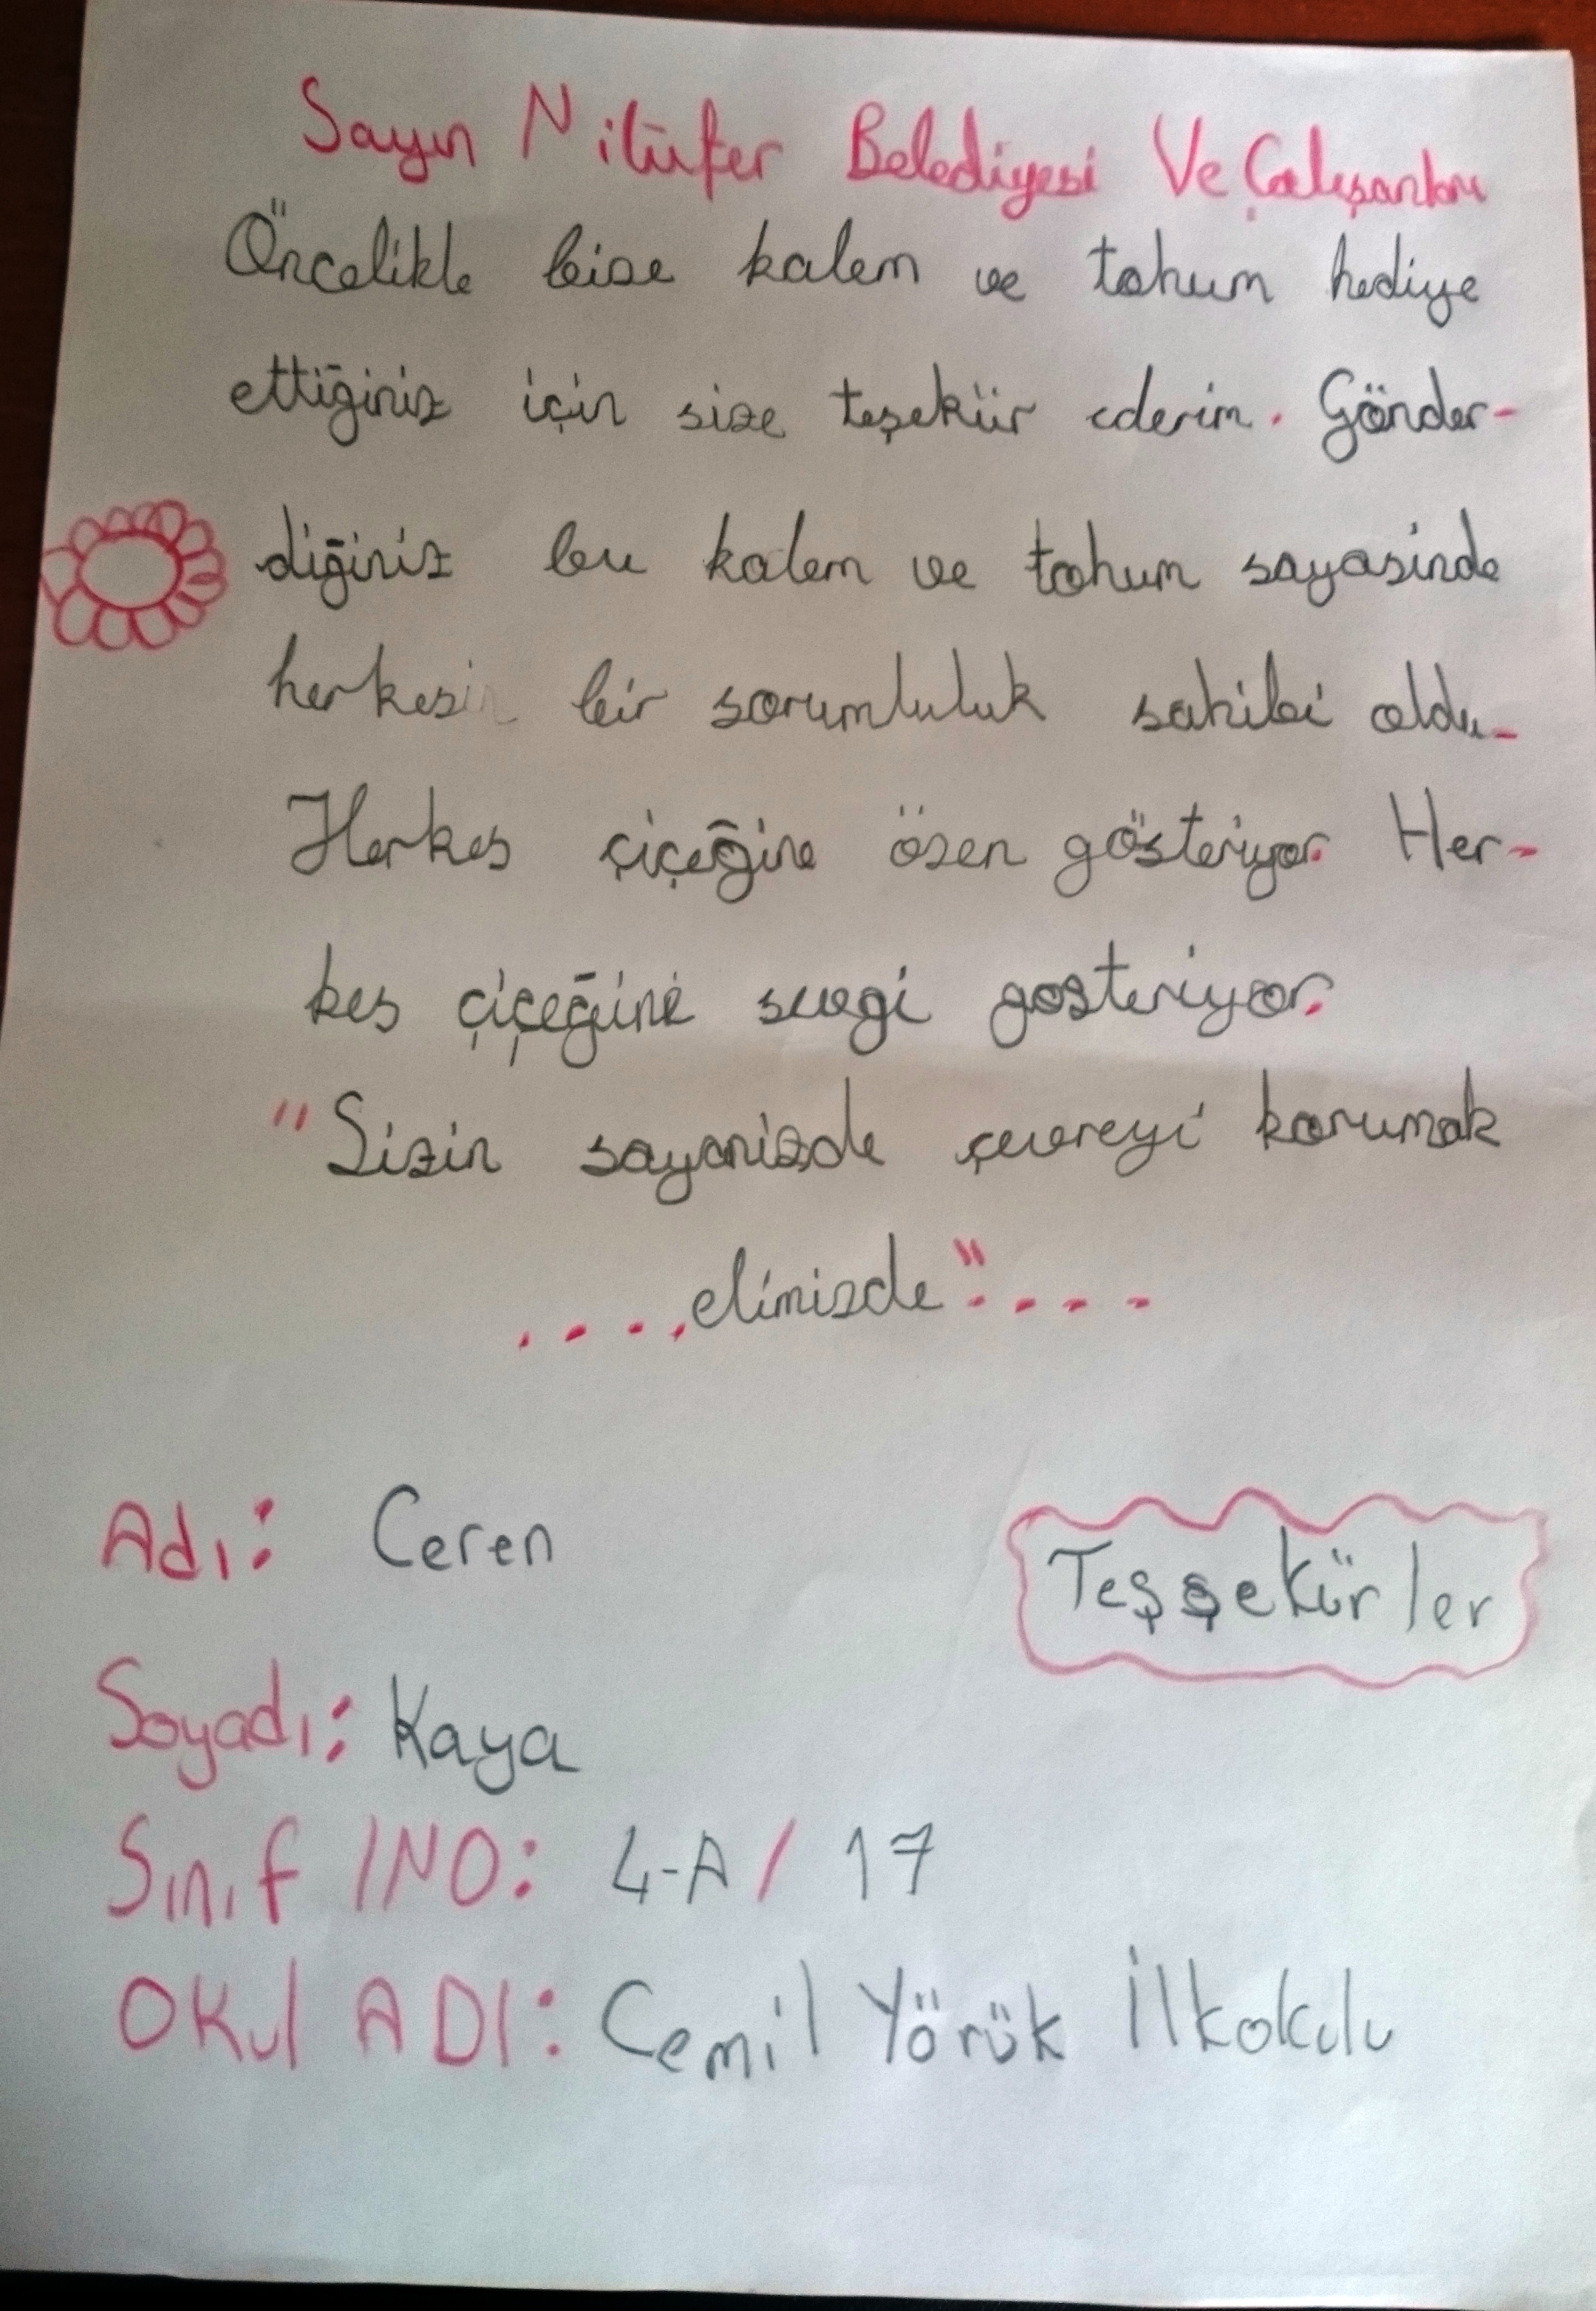 Sayın Nilüfer Belediyesi Ve Çalışanları
Öncelikle bize kalem ve tohum hediye
ettiğiniz için size teşekür ederim. Gönder-
diğiniz bu kalem ve tohum sayasinde
herkesin bir sorumluluk sahibi oldu.
Herkes çiçeğine özen gösteriyor. Her-
kes çiçeğine sevgi gosteriyor.
"Sizin sayanizde çevreyi korumak
....elimizde"....
Adı: Ceren
Teşşekürler
Soyadı: Kaya
Sınıf /NO: 4-A / 17
OKul ADI: Cemil Yörük İlkokulu